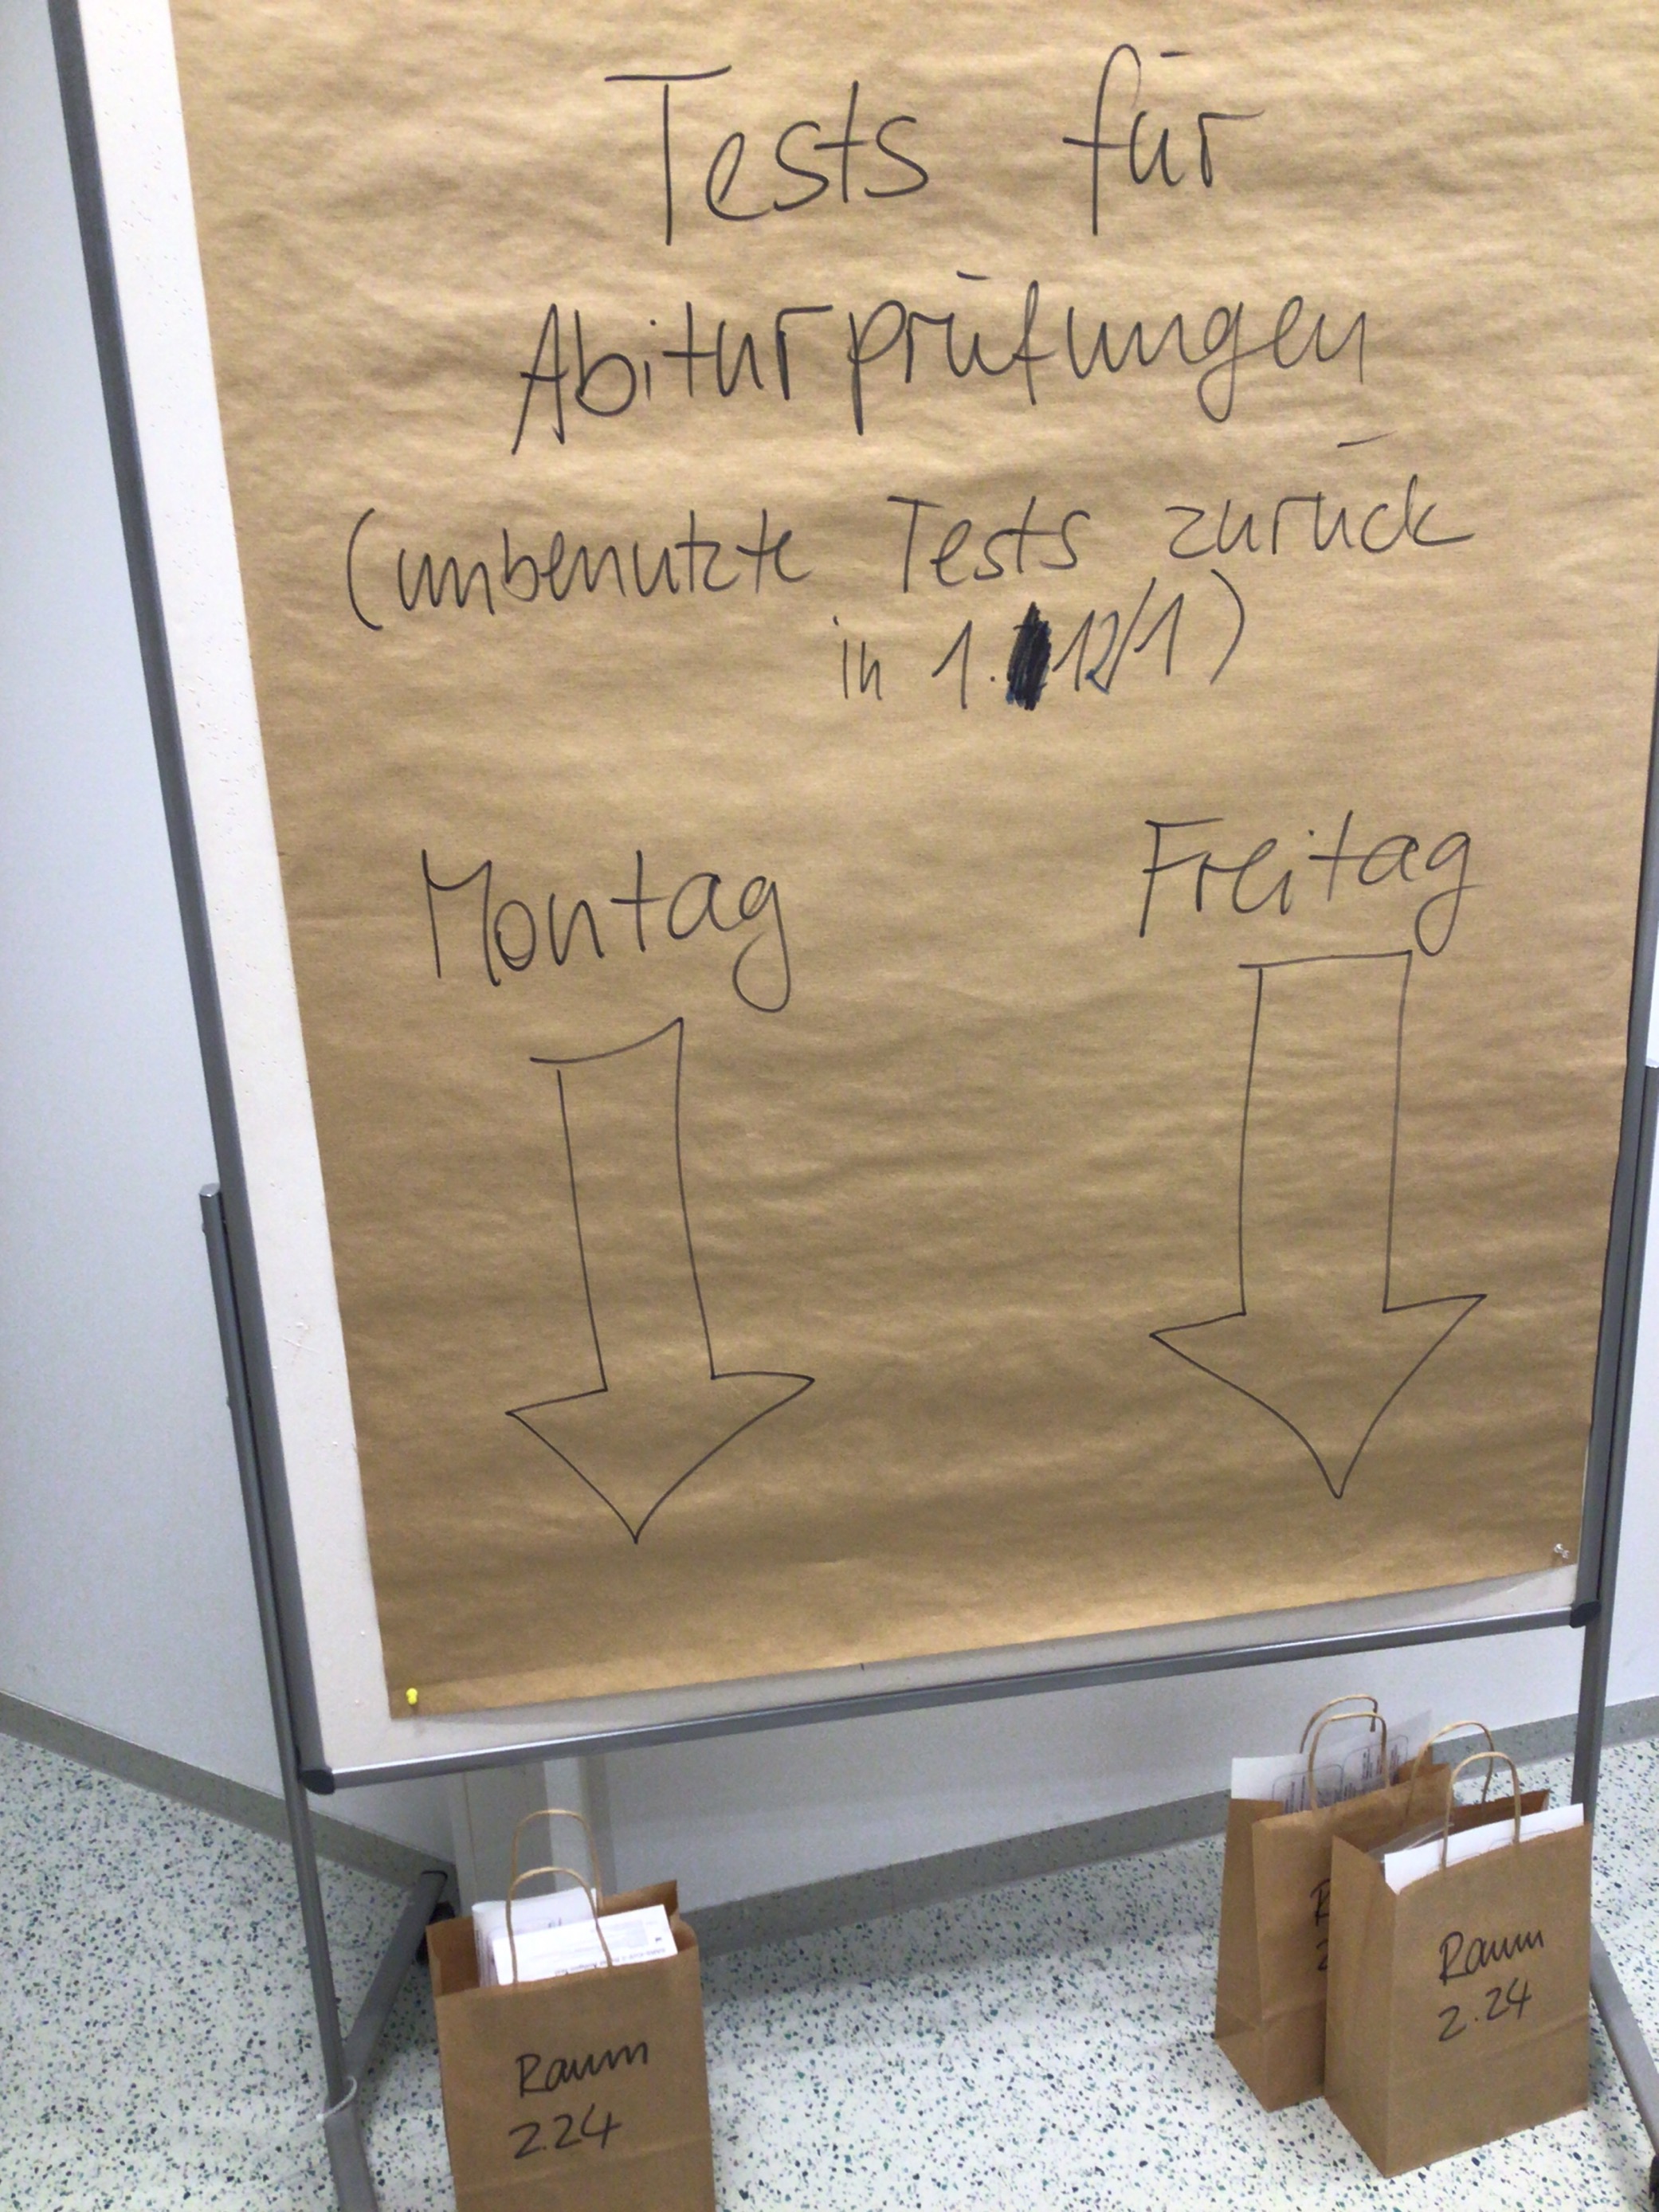 Tests für
Abiturprüfungen
(unbenutzte Tests zurück
in 1.12/1)
Montag
Freitag
Raum
2.24
Raum
2.24